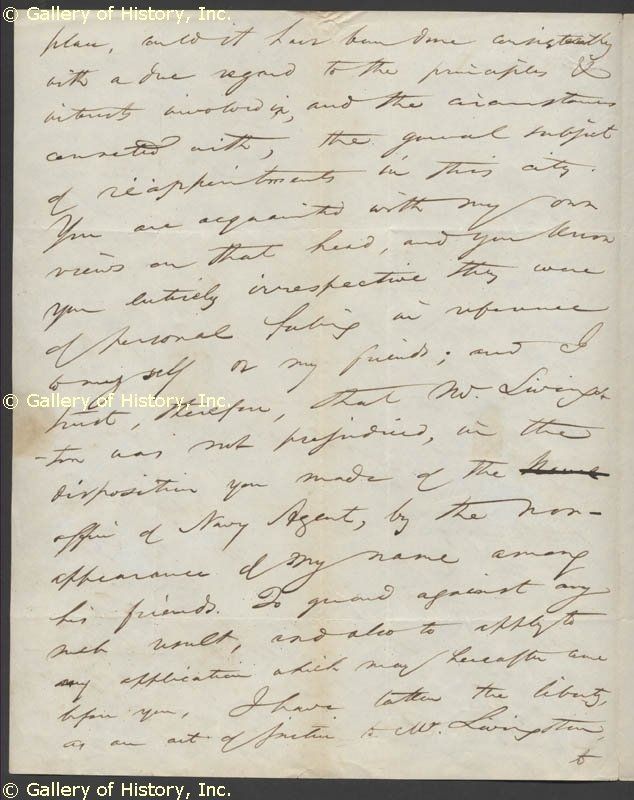 © Gallery of History, Inc.
place, could it have been done consistently
with a due regard to the principles &
interests involved in, and the circumstances
connected with, the general subject
of reäppointments in this city.
You are acquainted with my own
views on that head, and you know
you entirely irrespective they were
of personal feeling in reference
to myself or my friends; and I
© Gallery of History, Inc.
trust, therefore, that Mr. Livings-
-ton was not prejudiced, in the
disposition you made of the
office of Navy Agent, by the non-
appearance of my name among
his friends. To guard against any
such result, and also to apply to
any application which may hereafter come
before you, I have taken the liberty,
as an act of justice to Mr. Livingston,
to
© Gallery of History, Inc.